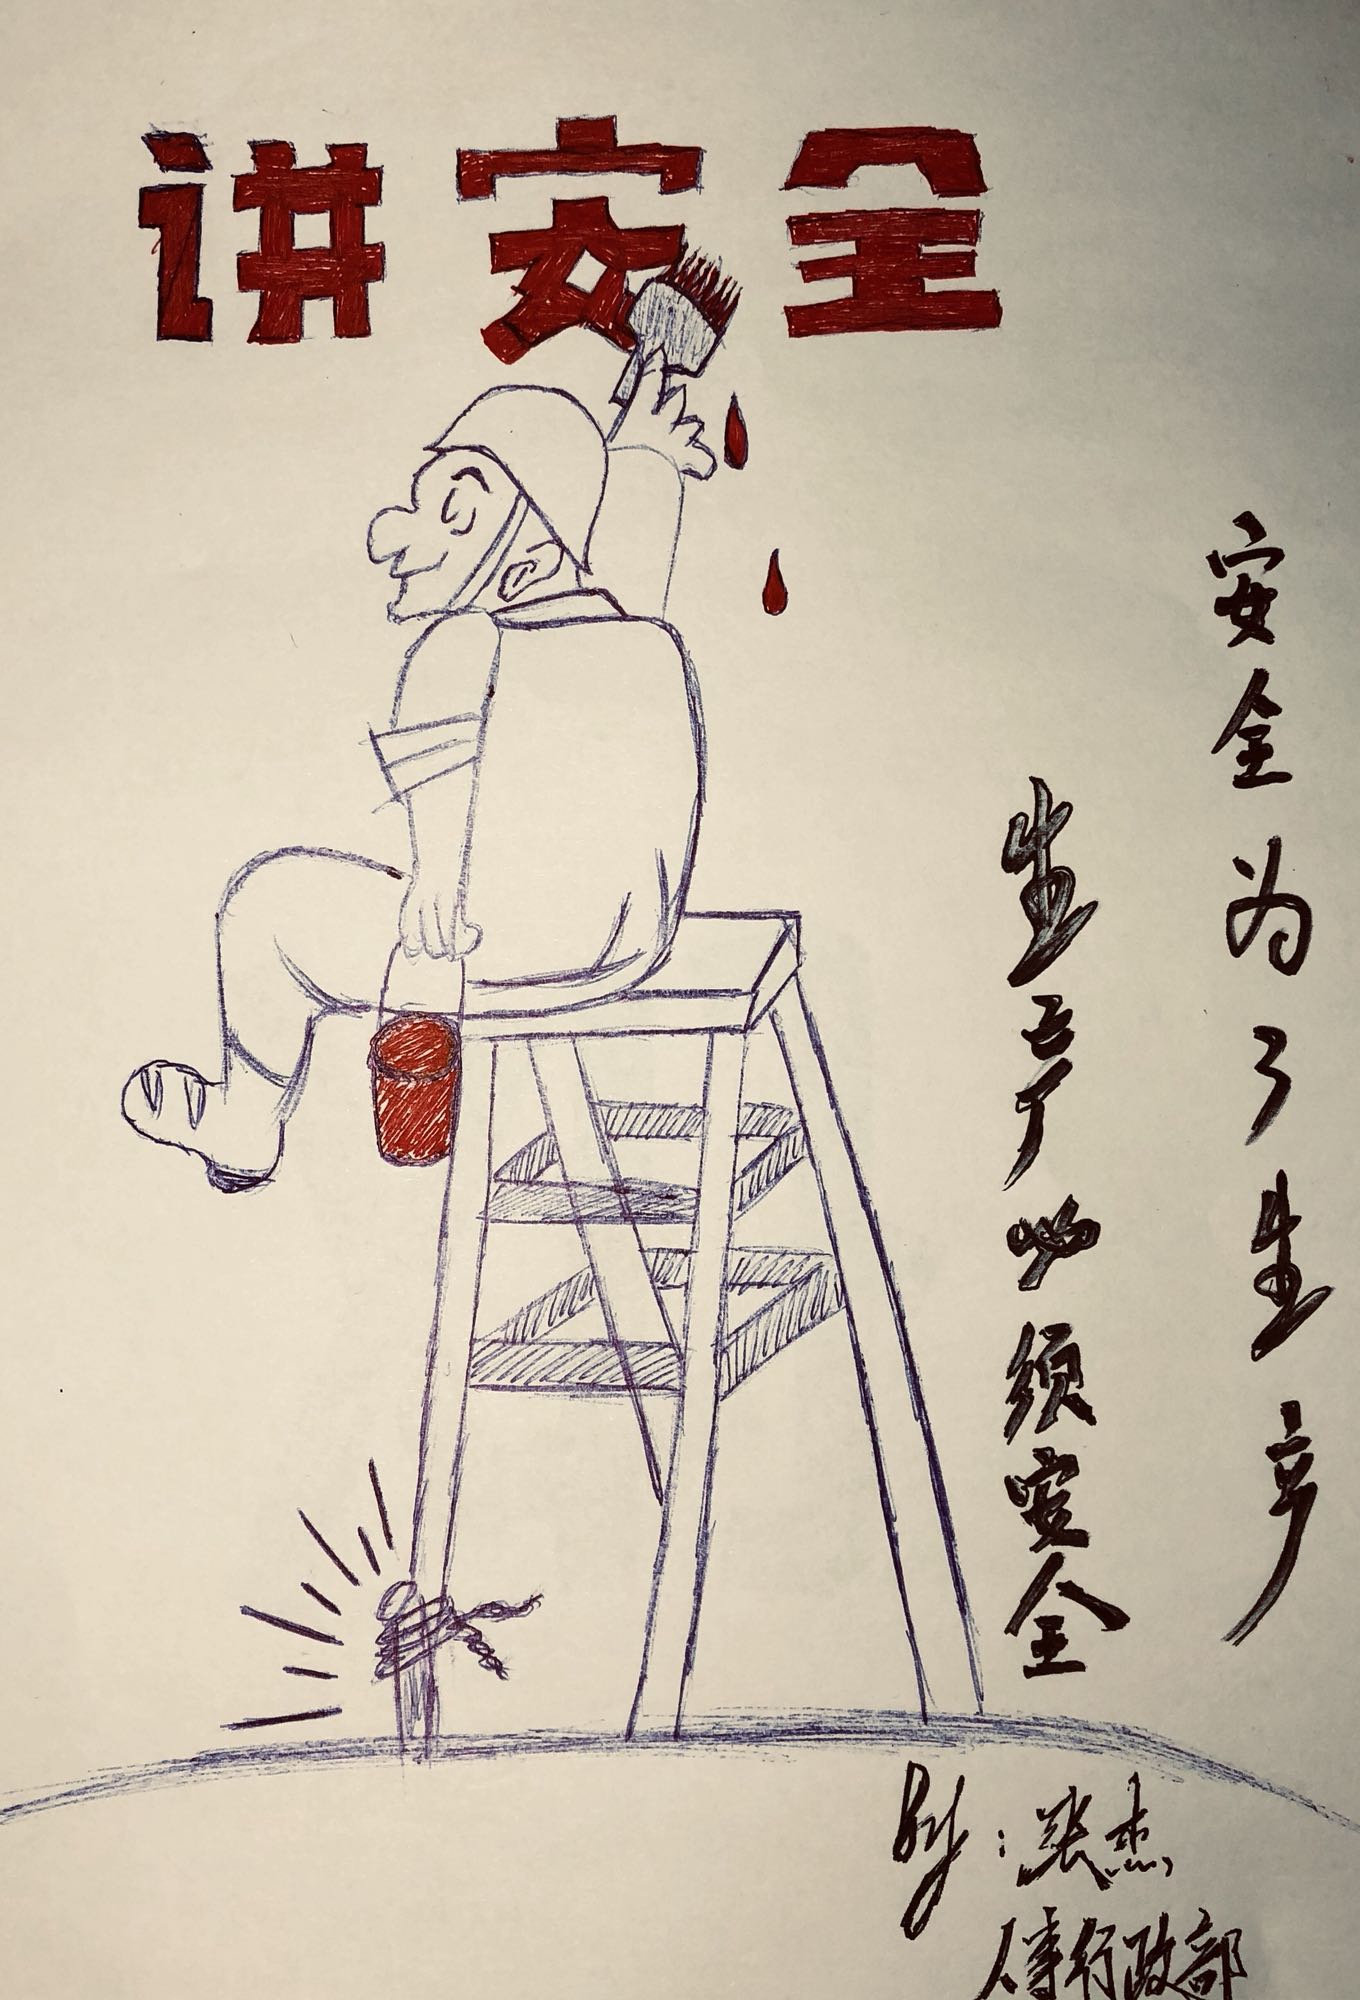 讲安全
安全为了生产
生产必须安全
By：张杰
人事行政部